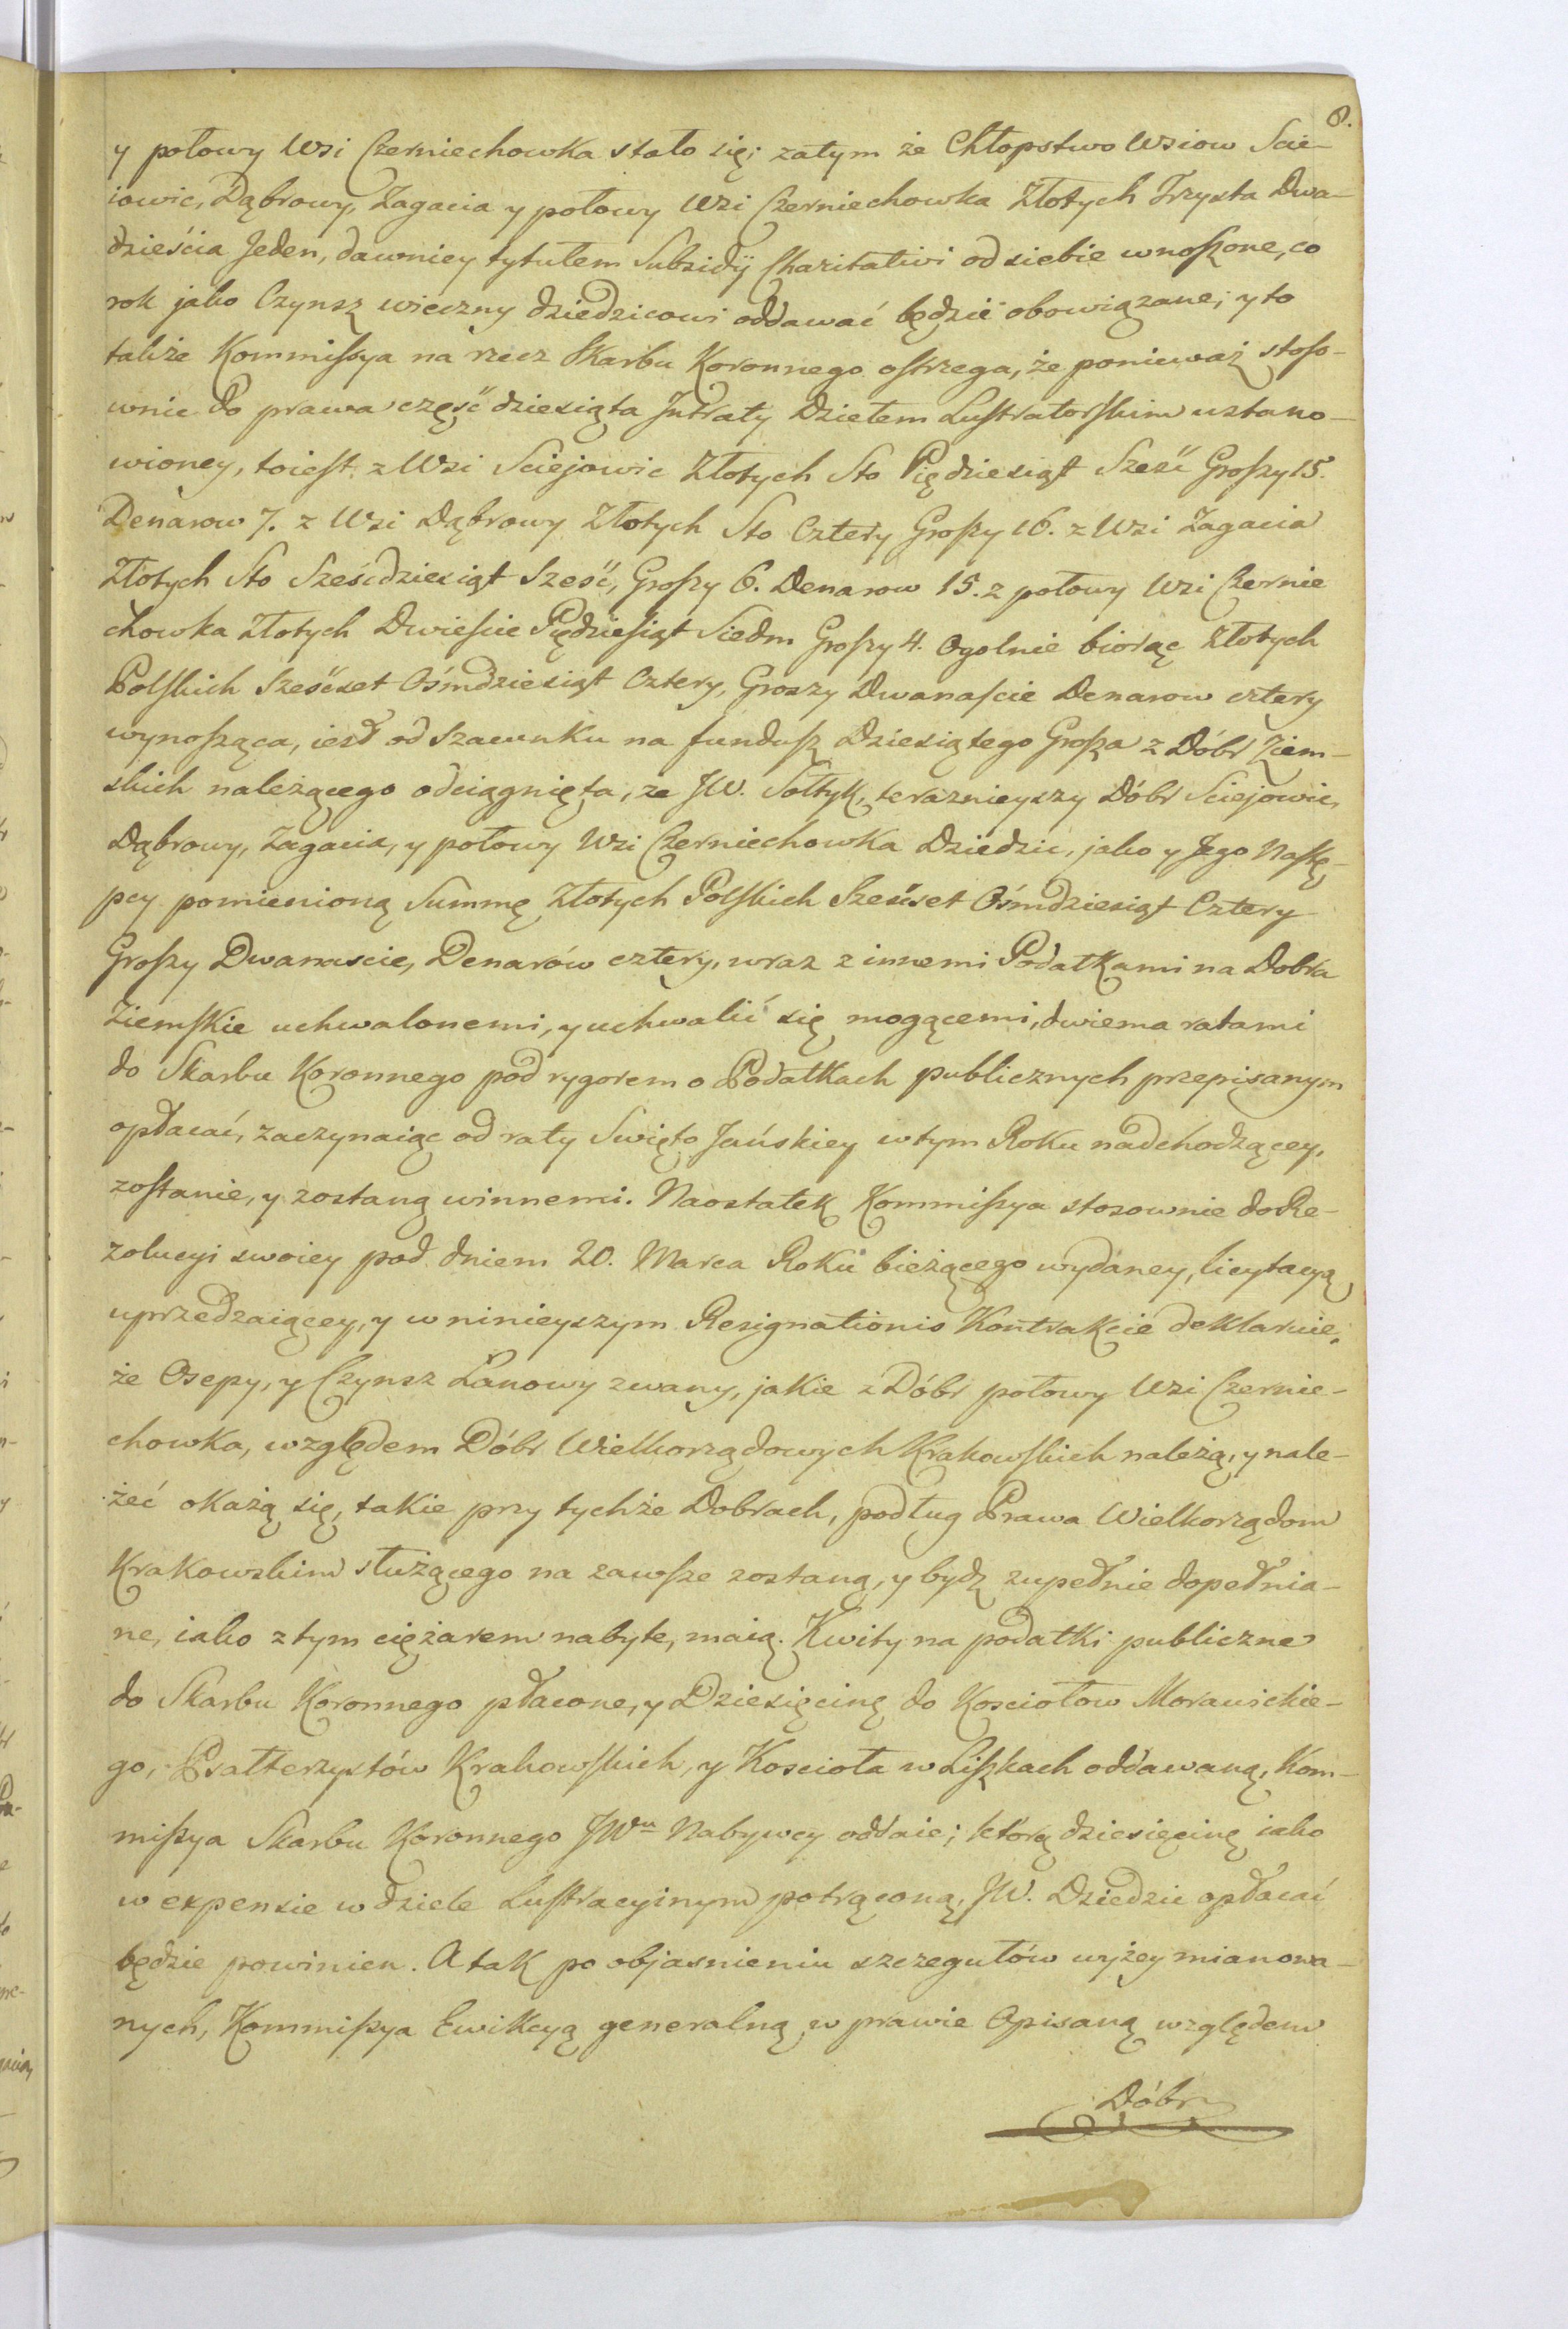 8.
y połowy Wsi Czerniechowka stało się; zatym że Chłopstwo Wsiow Scie-
iowic, Dąbrowy, Zagacia y połowy Wsi Czerniechowka Złotych Trzysta Dwa-
dzieścia Jeden, dawniey tytułem Subsidÿ Charitativi od siebie wnoszone, co
rok jako Czynsz wieczny dziedzicowi oddawać będzie obowiązane; y to
także Kommissya na rzecz Skarbu Koronnego ostrzega, że ponieważ stoso-
wnie do prawa część dziesiąta Intraty Dziełem Lustratorskim ustano-
wioney, toiest z Wsi Sciejowic Złotych Sto Piędziesiąt Sześć Groszy 15.
Denarow 7. z Wsi Dąbrowy Złotych Sto Cztery Groszy 16. z Wsi Zagacia
Złotych Sto Sześćdziesiąt Sześć, Groszy 6. Denarow 15. z połowy Wsi Czernie
chowka Złotych Dwieście Pędziesiąt Siedm Groszy 4. Ogolnie biorąc Złotych
Polskich Sześćset Ośmdziesiąt Cztery, Groszy Dwanaście Denarow cztery
wynosząca, iest od Szacunku na fundusz Dziesiątego Grosza z Dóbr Ziem-
skich należącego odciągnięta, że JW. Sołtyk, teraznieyszy Dóbr Sciejowic,
Dąbrowy, Zagacia, y połowy Wsi Czerniechowka Dziedzic, jako y Jego Nastę-
pcy pomienioną Summę Złotych Polskich Sześćset Ośmdziesiąt Cztery
Groszy Dwanascie, Denarów cztery, wraz z innemi Podatkami na Dobra
Ziemskie uchwalonemi, y uchwalić się mogącemi, dwiema ratami
do Skarbu Koronnego pod rygorem o Podatkach publicznych przepisanym
opłacać, zaczynaiąc od raty Swięto Jańskiey w tym Roku nadchodzącey,
zostanie, y zostaną winnemi. Naostatek Kommissya stosownie do Re-
zolucyi swoiey pod dniem 20. Marca Roku bieżącego wydaney, licytacyą
uprzedzaiącey, y w ninieyszym Resignationis Kontrakcie deklaruie,
że Osepy, y Czynsz Łanowy zwany, jakie z Dóbr połowy Wsi Czernie-
chowka, względem Dóbr Wielkorządowych Krakowskich należą, y nale-
żeć okażą się, takie przy tychże Dobrach, podług Prawa Wielkorządom
Krakowskim służącego na zawsze zostaną, y bydź zupełnie dopełnia-
ne, iako z tym ciężarem nabyte, maią. Kwity na podatki publiczne
do Skarbu Koronnego płacone, y Dziesięcinę do Kosciołow Morawickie-
go, Psałterzystów Krakowskich, y Kosciola w Liszkach oddawaną, Kom-
missya Skarbu Koronnego JWu Nabywcy oddaie; którą dziesięcinę iako
w expensie w dziele Lustracyinym potrąconą, JW. Dziedzic opłacać
będzie powinien. A tak po objasnieniu szczegułów wyżey mianowa-
nych, Kommissya Ewikcyą generalną w prawie Opisaną względem
Dóbr